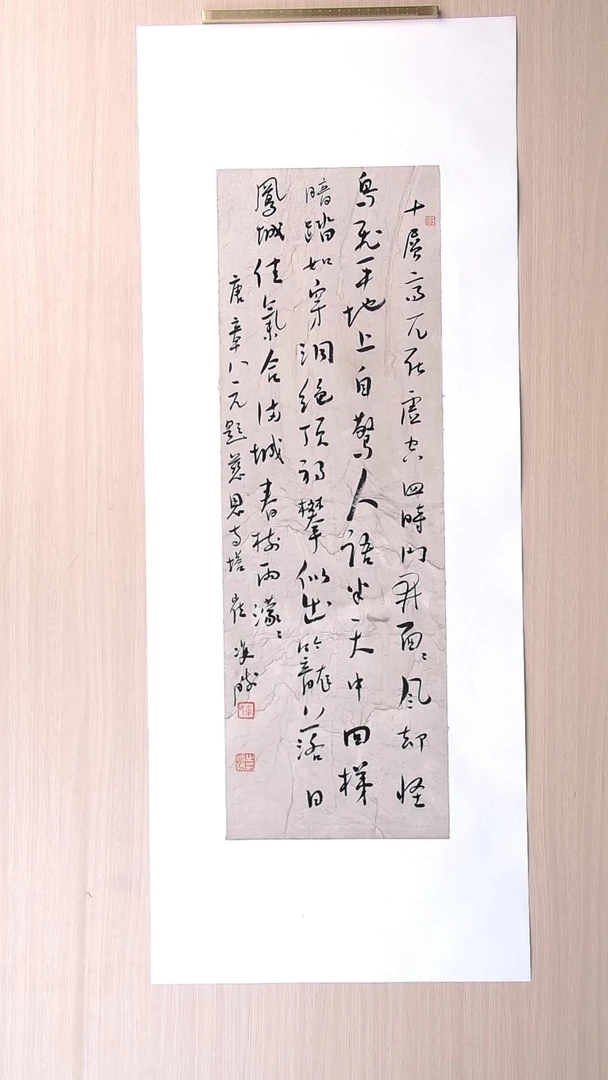 十層高兀在虛空四時門開面〻風却怪
鳥飛平地上自驚人語半天中回梯
暗踏如穿洞絕頂初攀似出籠落日
鳳城佳氣合滿城春樹雨濛〻
唐章八元題慈恩寺塔 崔